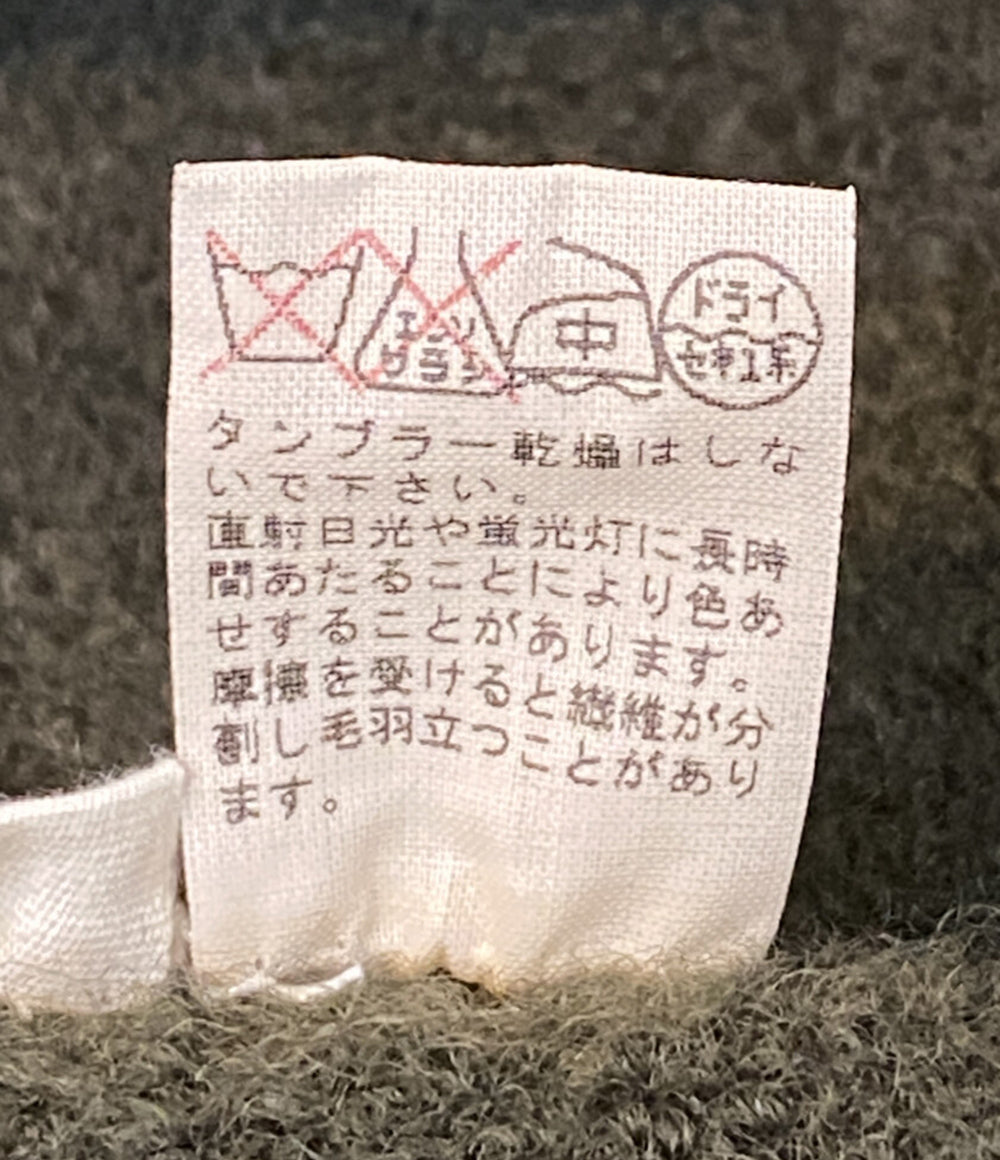 エンソ
サラシ
中
ドライ
セキユ系
タンブラー乾燥はしな
いで下さい。
直射日光や蛍光灯に長時
間あたることにより色あ
せすることがあります。
摩擦を受けると繊維が分
割し毛羽立つことがあり
ます。